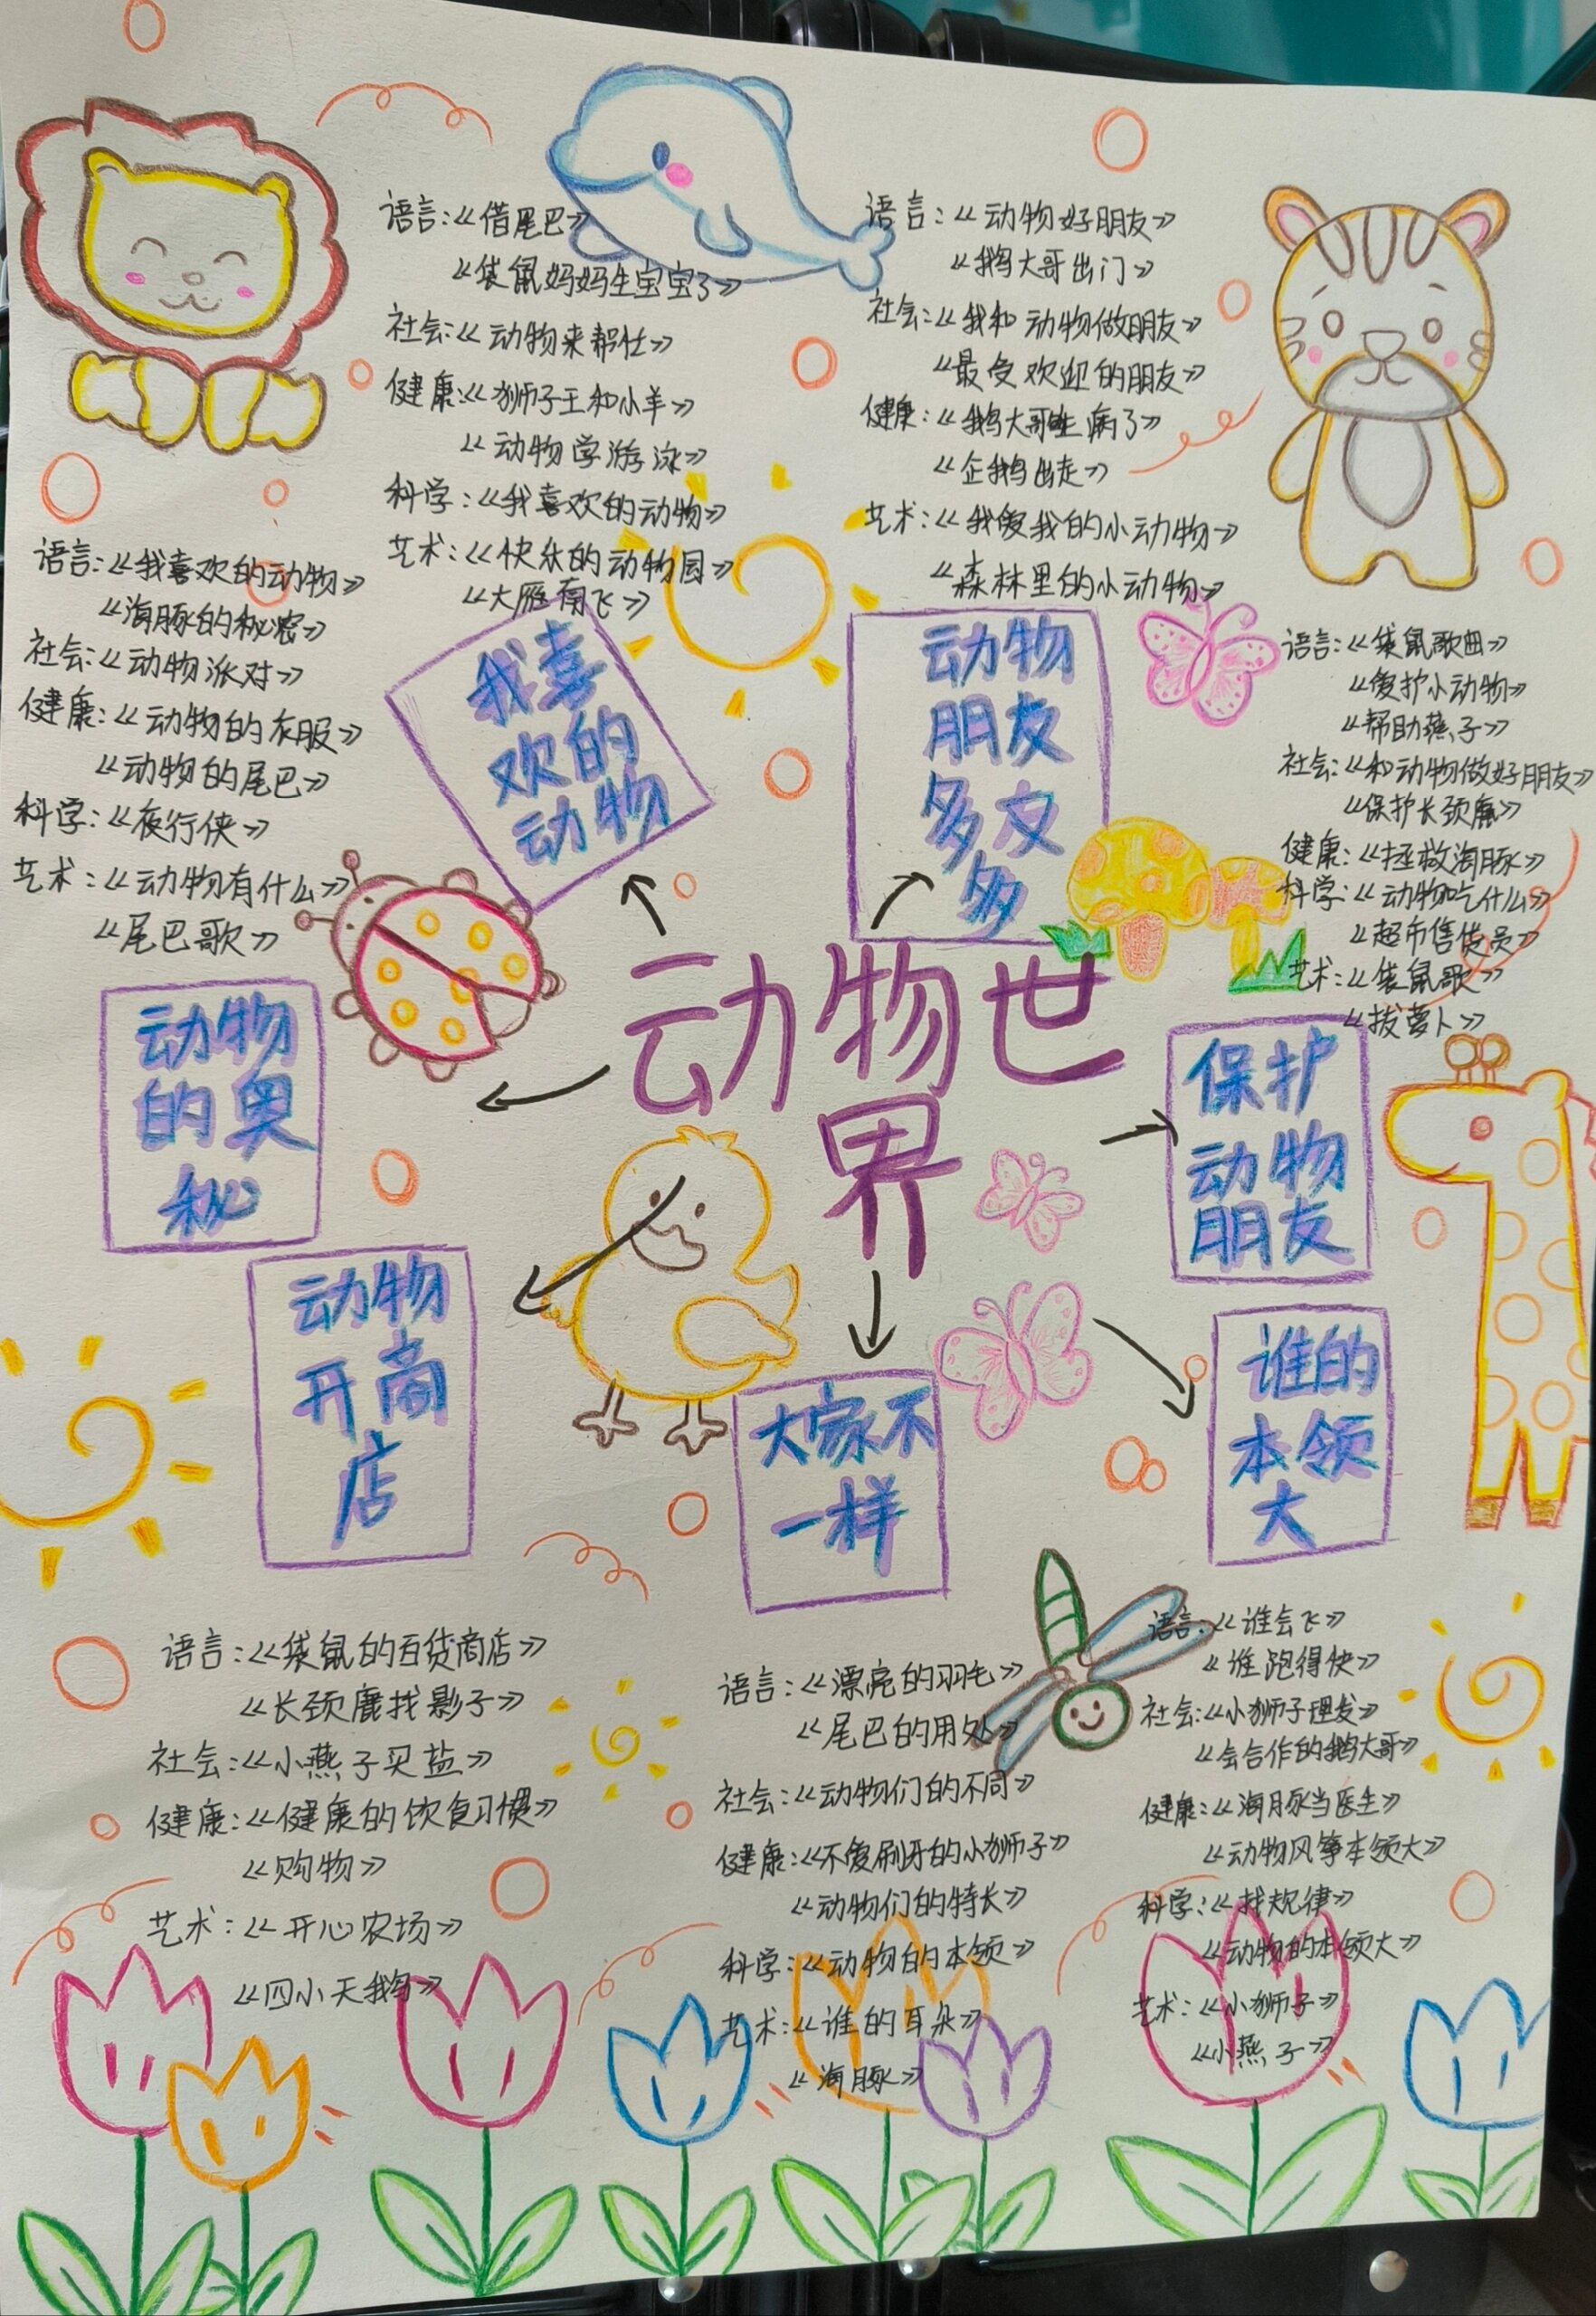 语言:《借尾巴》
《袋鼠妈妈生宝宝了》
社会:《动物来帮忙》
健康:《狮子王和小羊》
《动物学游泳》
科学:《我喜欢的动物》
艺术:《快乐的动物园》
《大雁南飞》
语言:《动物好朋友》
《鹅大哥出门》
社会:《我和动物做朋友》
《最受欢迎的朋友》
健康:《鹅大哥生病了》
《企鹅出走》
艺术:《我爱我的小动物》
《森林里的小动物》
语言:《我喜欢的动物》
《海豚的秘密》
社会:《动物派对》
健康:《动物的衣服》
《动物的尾巴》
科学:《夜行侠》
艺术:《动物有什么》
《尾巴歌》
语言:《袋鼠歌曲》
《爱护小动物》
《帮助燕子》
社会:《和动物做好朋友》
《保护长颈鹿》
健康:《拯救海豚》
科学:《动物吃什么》
《超市售货员》
艺术:《袋鼠歌》
《拔萝卜》
我喜
欢的
动物
动物
朋友
多又
多
动物世
界
动物
的奥
秘
保护
动物
朋友
动物
开商
店
大家不
一样
谁的
本领
大
语言:《袋鼠的百货商店》
《长颈鹿找影子》
社会:《小燕子买盐》
健康:《健康的饮食习惯》
《购物》
艺术:《开心农场》
《四小天鹅》
语言:《漂亮的羽毛》
《尾巴的用处》
社会:《动物们的不同》
健康:《不爱刷牙的小狮子》
《动物们的特长》
科学:《动物的本领》
艺术:《谁的耳朵》
《海豚》
语言:《谁会飞》
《谁跑得快》
社会:《小狮子理发》
《会合作的鹅大哥》
健康:《海豚当医生》
《动物风筝本领大》
科学:《找规律》
《动物的本领大》
艺术:《小狮子》
《小燕子》